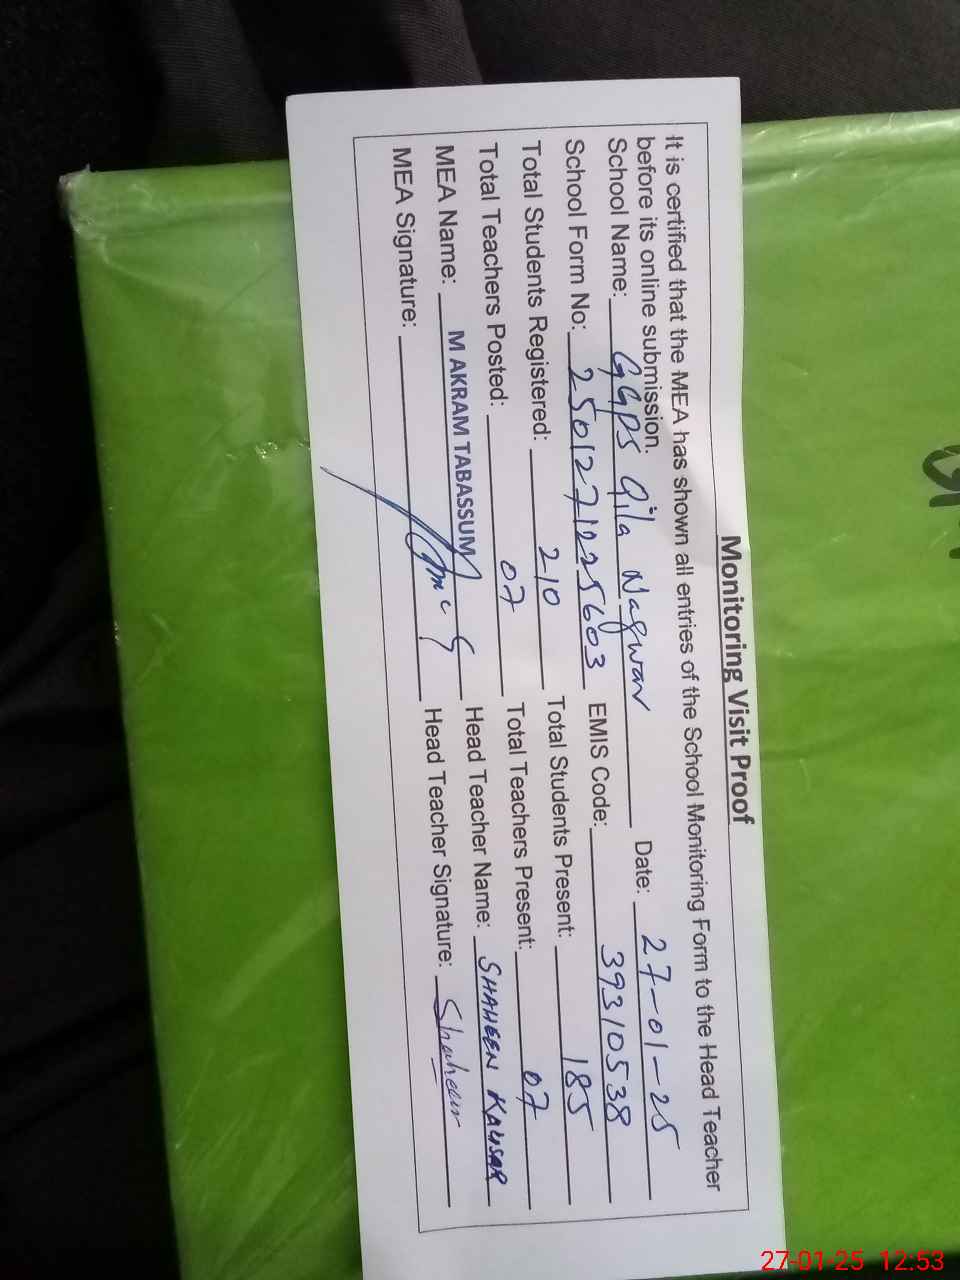 Monitoring Visit Proof
It is certified that the MEA has shown all entries of the School Monitoring Form to the Head Teacher
before its online submission.
School Name: GGPS Gila Nagwar Date: 27-01-25
School Form No: 2501271225603 EMIS Code: 39310538
Total Students Registered: 210 Total Students Present: 185
Total Teachers Posted: 07 Total Teachers Present: 07
MEA Name: M AKRAM TABASSUM Head Teacher Name: SHAHEEN KAUSAR
MEA Signature: Head Teacher Signature: Shaheen
27-01-25 12:53